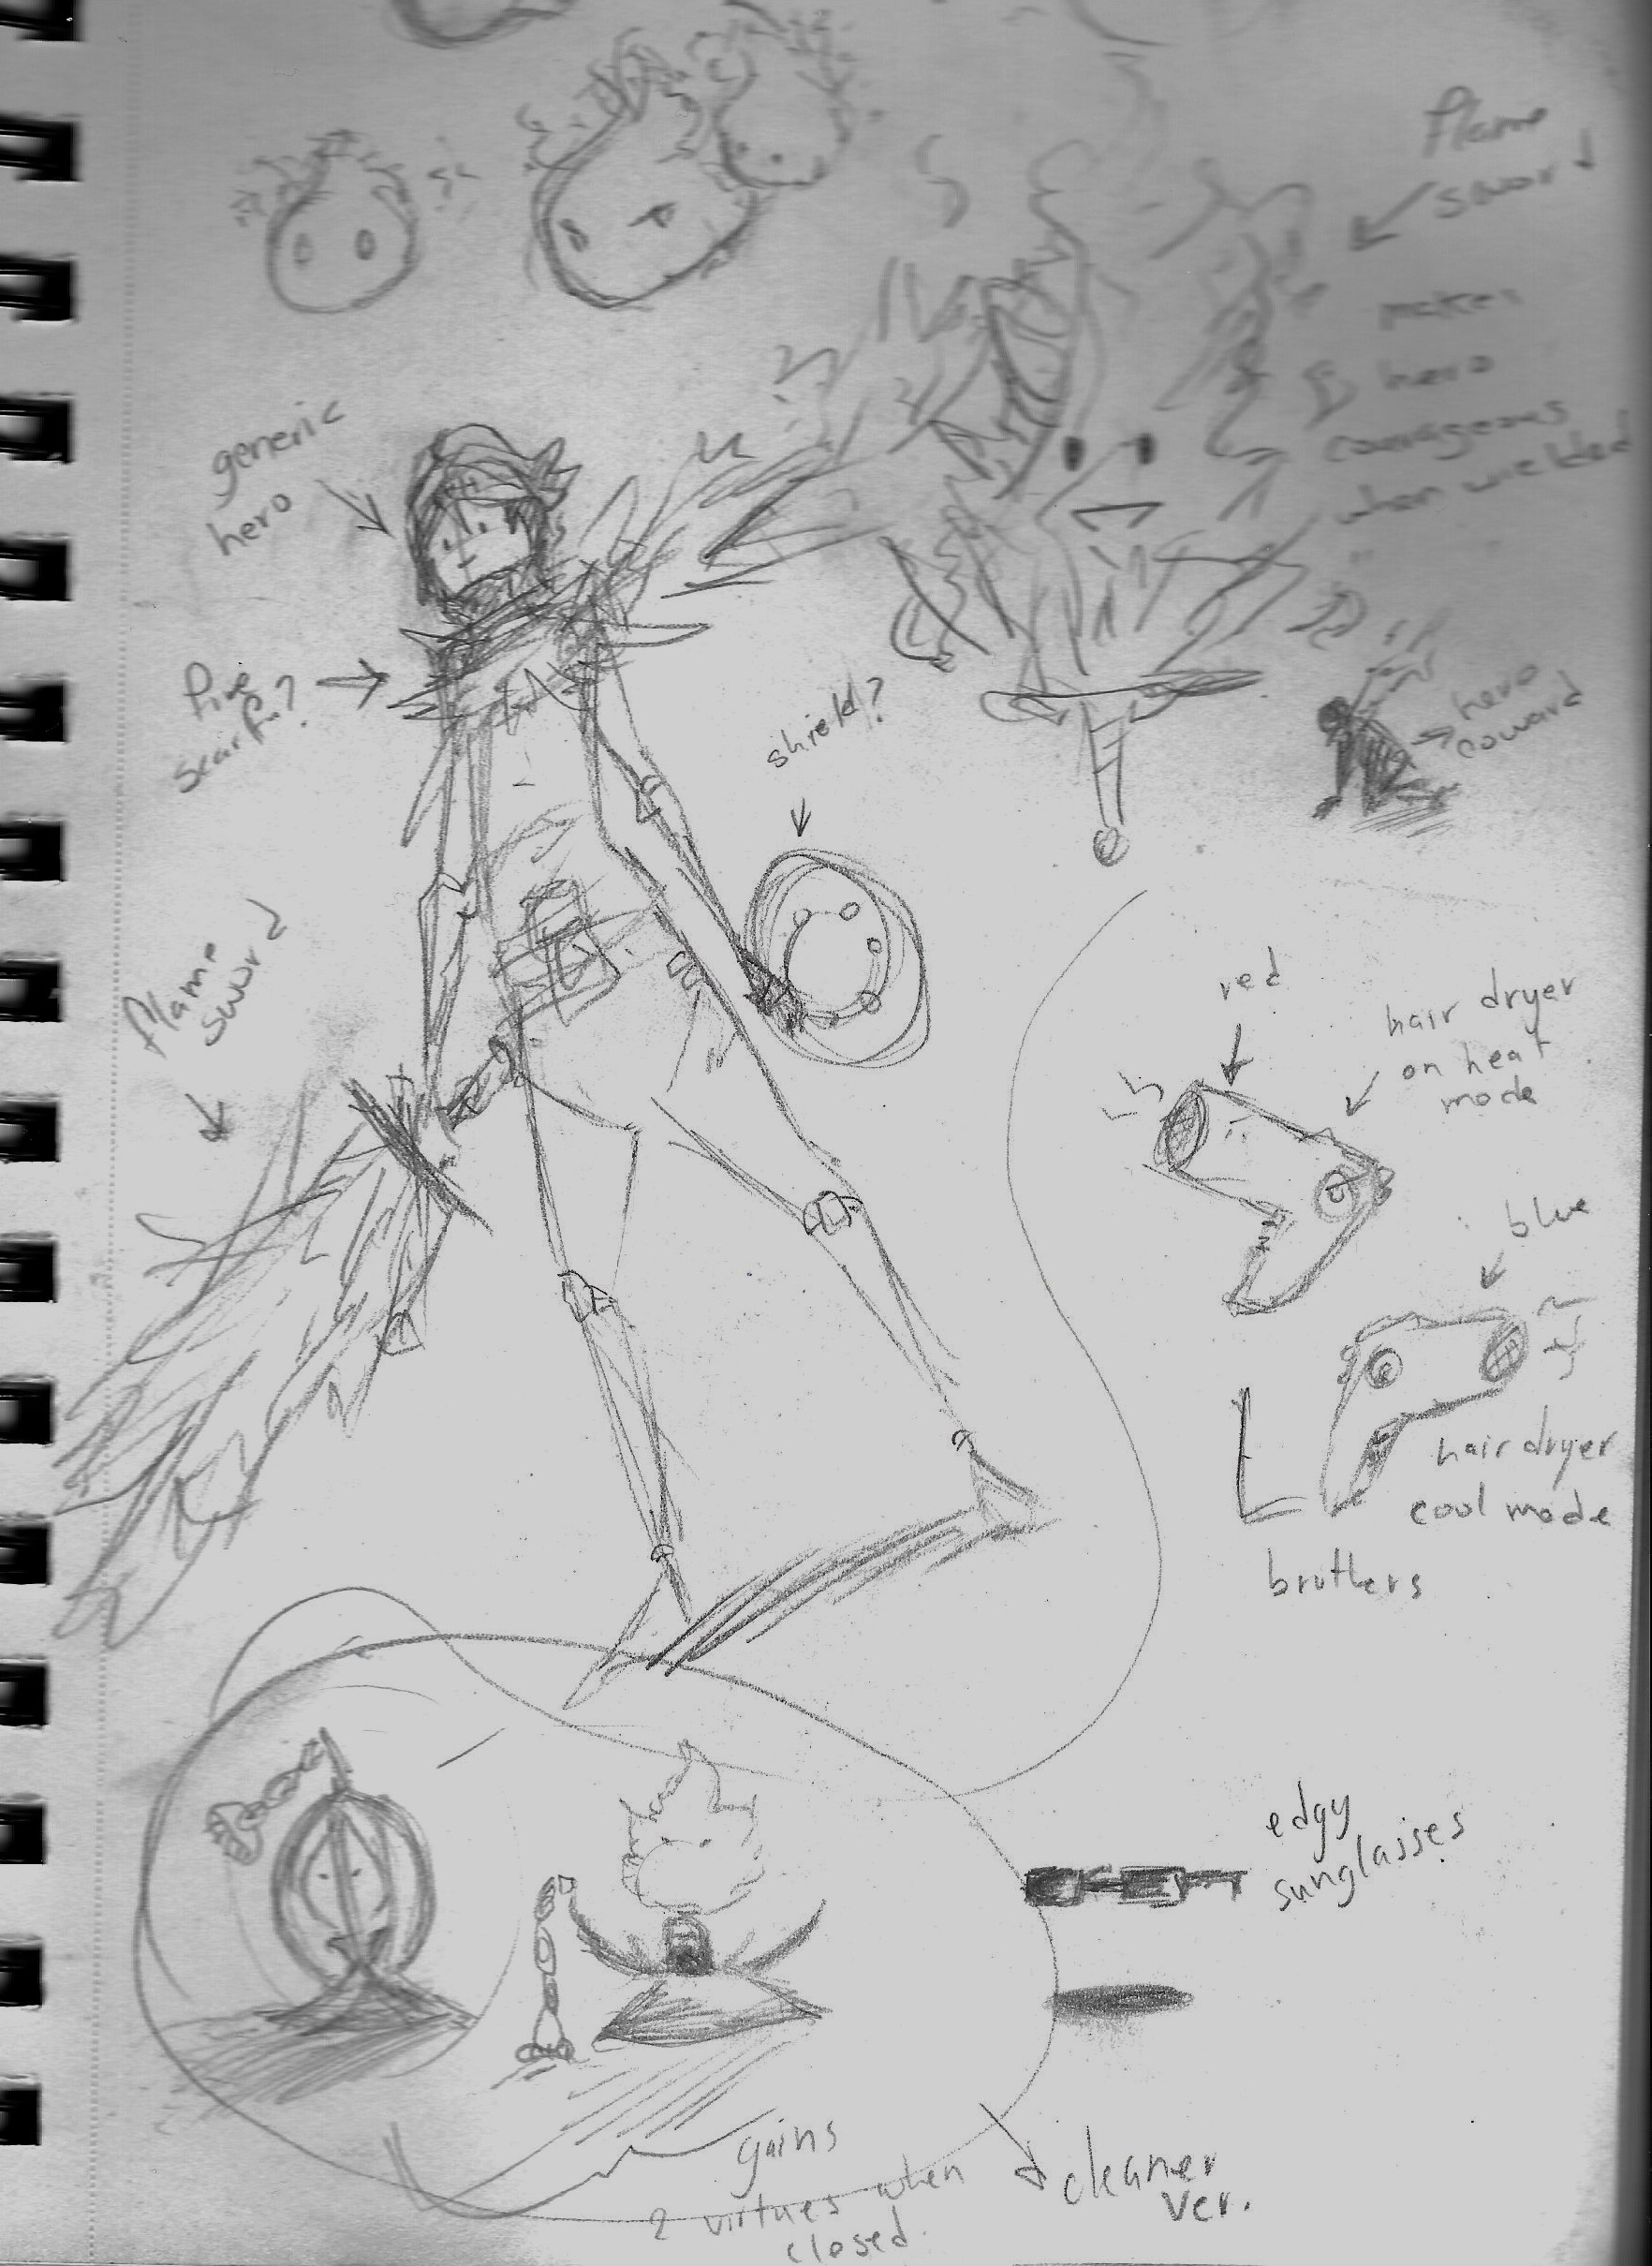 flame
sword
makes
hero
courageous
when wielded
generic
hero
fire
scarf?
shield?
hero
coward
flame
sword
red
hair dryer
on heat
mode
blue
hair dryer
cool mode
brothers
edgy
sunglasses
gains
2 virtues when
closed.
cleaner
ver.